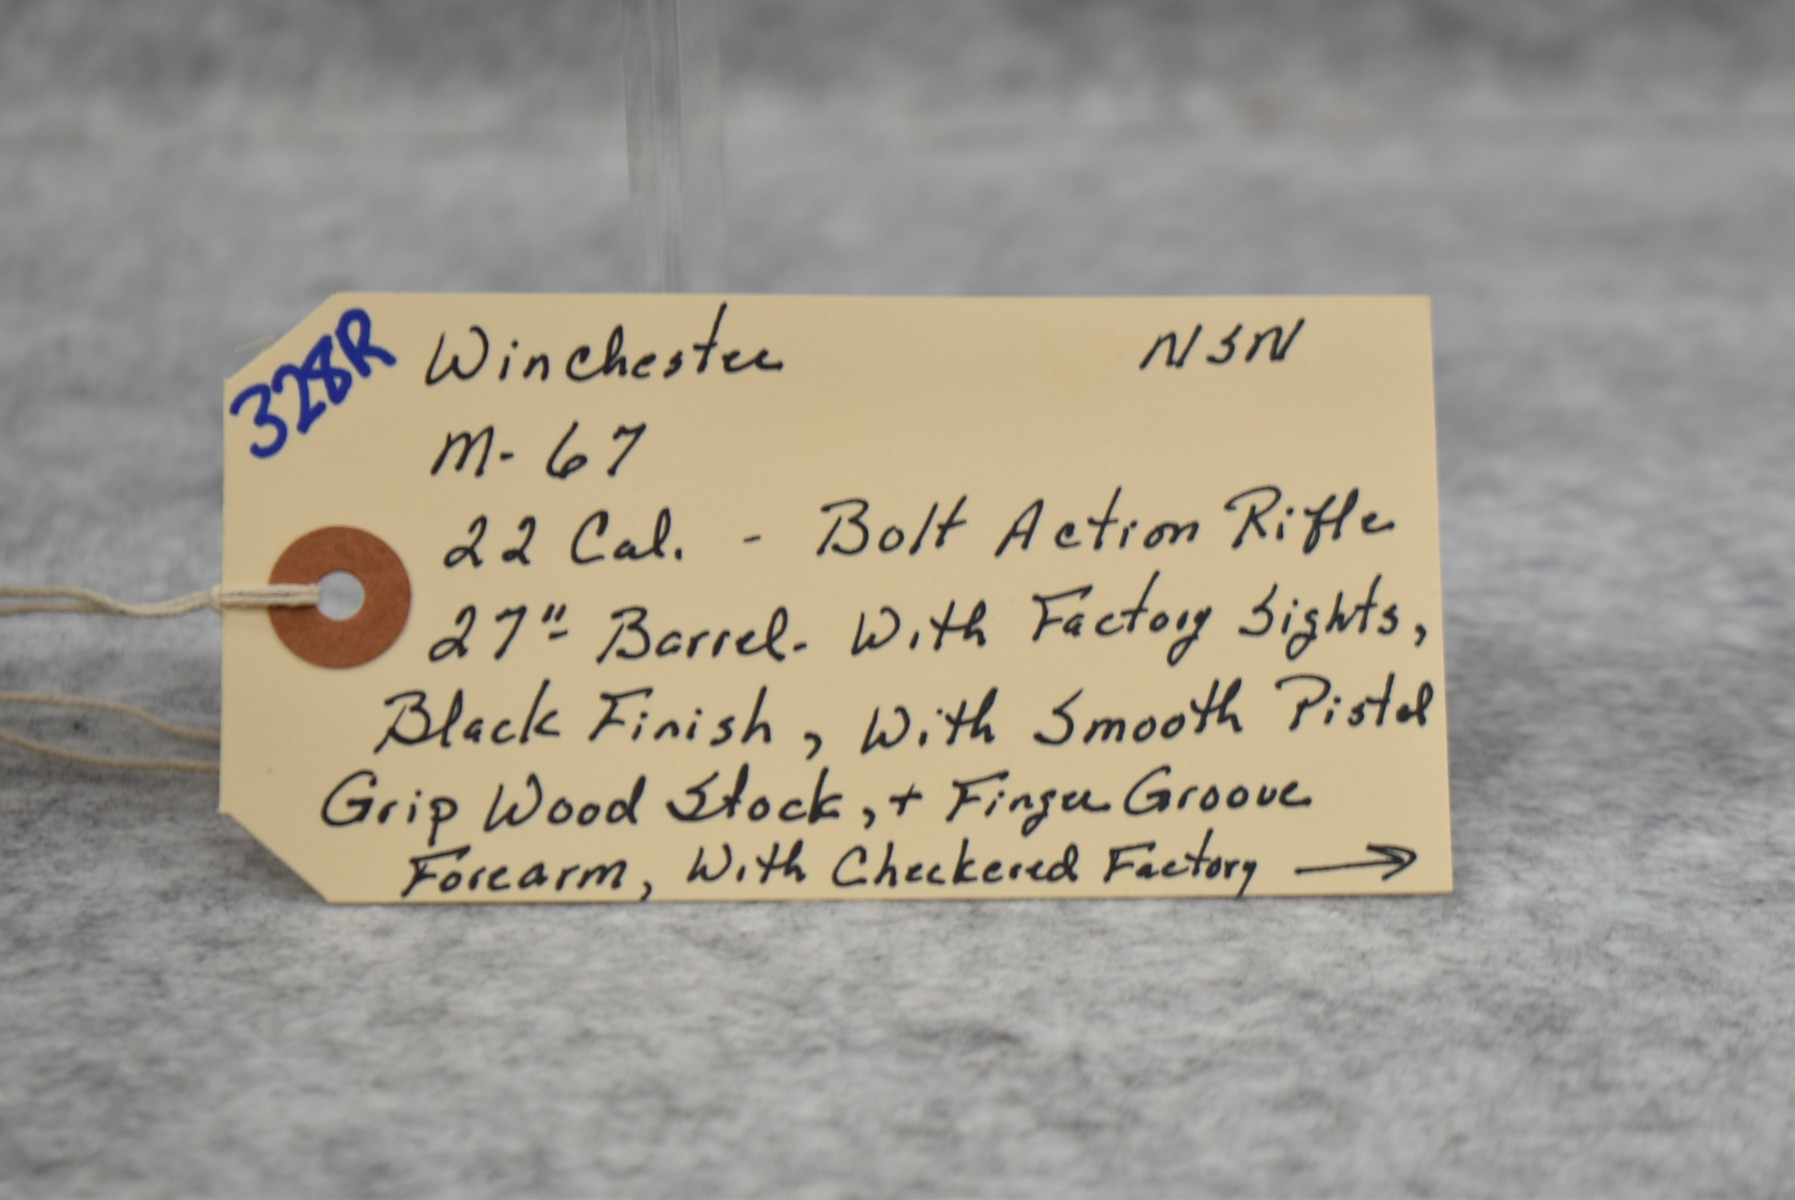 328R
Winchester NSN
M-67
22 Cal. - Bolt Action Rifle
27"- Barrel- With Factory Sights,
Black Finish, With Smooth Pistol
Grip Wood Stock, + Finger Groove
Forearm, With Checkered Factory →